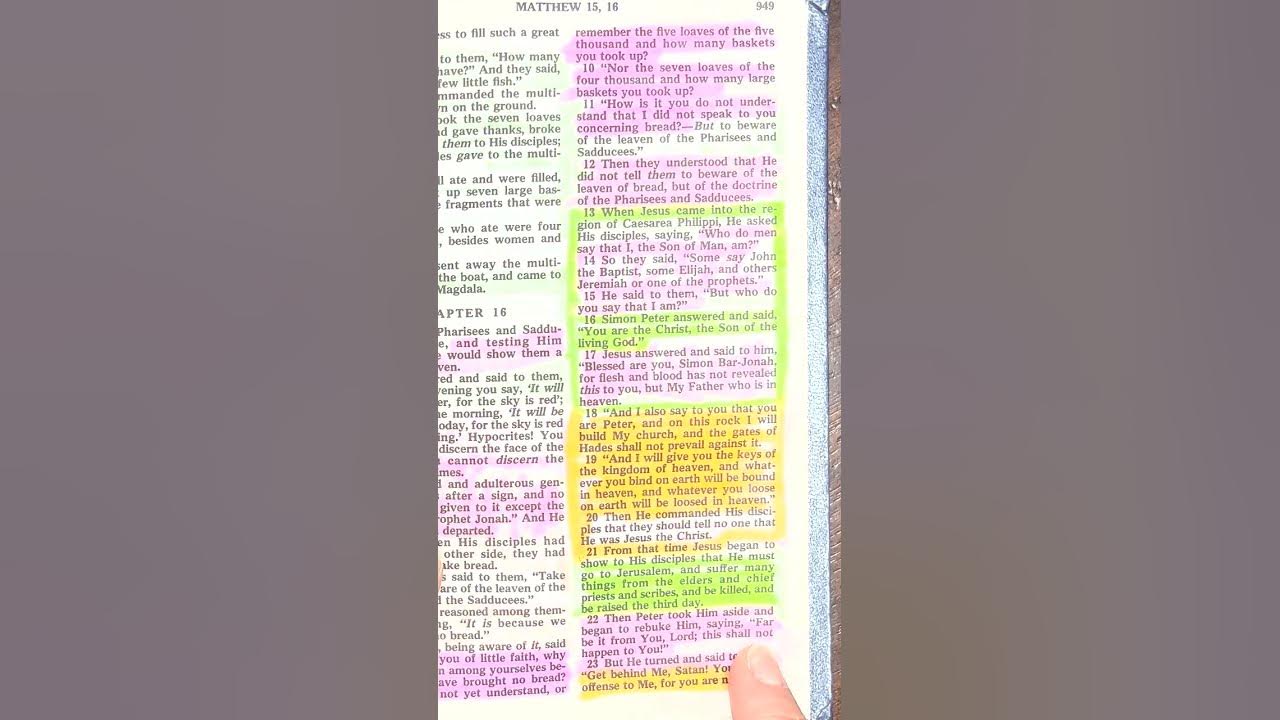 MATTHEW 15, 16
949
ess to fill such a great
to them, “How many
have?” And they said,
few little fish.”
mmanded the multi-
n on the ground.
ook the seven loaves
d gave thanks, broke
them to His disciples;
les gave to the multi-
ll ate and were filled,
up seven large bas-
e fragments that were
e who ate were four
, besides women and
sent away the multi-
the boat, and came to
Magdala.
APTER 16
Pharisees and Saddu-
e, and testing Him
e would show them a
ven.
red and said to them,
vening you say, ‘It will
er, for the sky is red’;
he morning, ‘It will be
oday, for the sky is red
ing.’ Hypocrites! You
discern the face of the
cannot discern the
mes.
d and adulterous gen-
s after a sign, and no
given to it except the
rophet Jonah.” And He
departed.
en His disciples had
other side, they had
ake bread.
s said to them, “Take
are of the leaven of the
d the Sadducees.”
reasoned among them-
ng, “It is because we
o bread.”
, being aware of it, said
you of little faith, why
n among yourselves be-
ave brought no bread?
not yet understand, or
remember the five loaves of the five
thousand and how many baskets
you took up?
10 “Nor the seven loaves of the
four thousand and how many large
baskets you took up?
11 “How is it you do not under-
stand that I did not speak to you
concerning bread?—But to beware
of the leaven of the Pharisees and
Sadducees.”
12 Then they understood that He
did not tell them to beware of the
leaven of bread, but of the doctrine
of the Pharisees and Sadducees.
13 When Jesus came into the re-
gion of Caesarea Philippi, He asked
His disciples, saying, “Who do men
say that I, the Son of Man, am?”
14 So they said, “Some say John
the Baptist, some Elijah, and others
Jeremiah or one of the prophets.”
15 He said to them, “But who do
you say that I am?”
16 Simon Peter answered and said,
“You are the Christ, the Son of the
living God.”
17 Jesus answered and said to him,
“Blessed are you, Simon Bar-Jonah,
for flesh and blood has not revealed
this to you, but My Father who is in
heaven.
18 “And I also say to you that you
are Peter, and on this rock I will
build My church, and the gates of
Hades shall not prevail against it.
19 “And I will give you the keys of
the kingdom of heaven, and what-
ever you bind on earth will be bound
in heaven, and whatever you loose
on earth will be loosed in heaven.”
20 Then He commanded His disci-
ples that they should tell no one that
He was Jesus the Christ.
21 From that time Jesus began to
show to His disciples that He must
go to Jerusalem, and suffer many
things from the elders and chief
priests and scribes, and be killed, and
be raised the third day.
22 Then Peter took Him aside and
began to rebuke Him, saying, “Far
be it from You, Lord; this shall not
happen to You!”
23 But He turned and said
“Get behind Me, Satan!
offense to Me, for you are